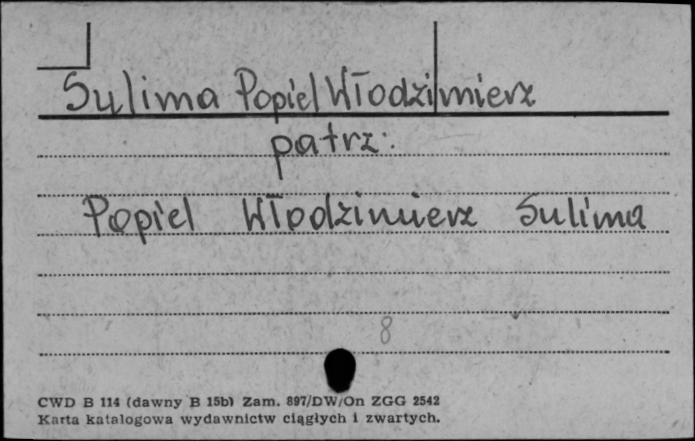 Sulima Popiel Włodzimierz
patrz:
Popiel Włodzimierz Sulima
8
CWD B 114 (dawny B 15b) Zam. 897/DW/On ZGG 2542
Karta katalogowa wydawnictw ciągłych i zwartych.